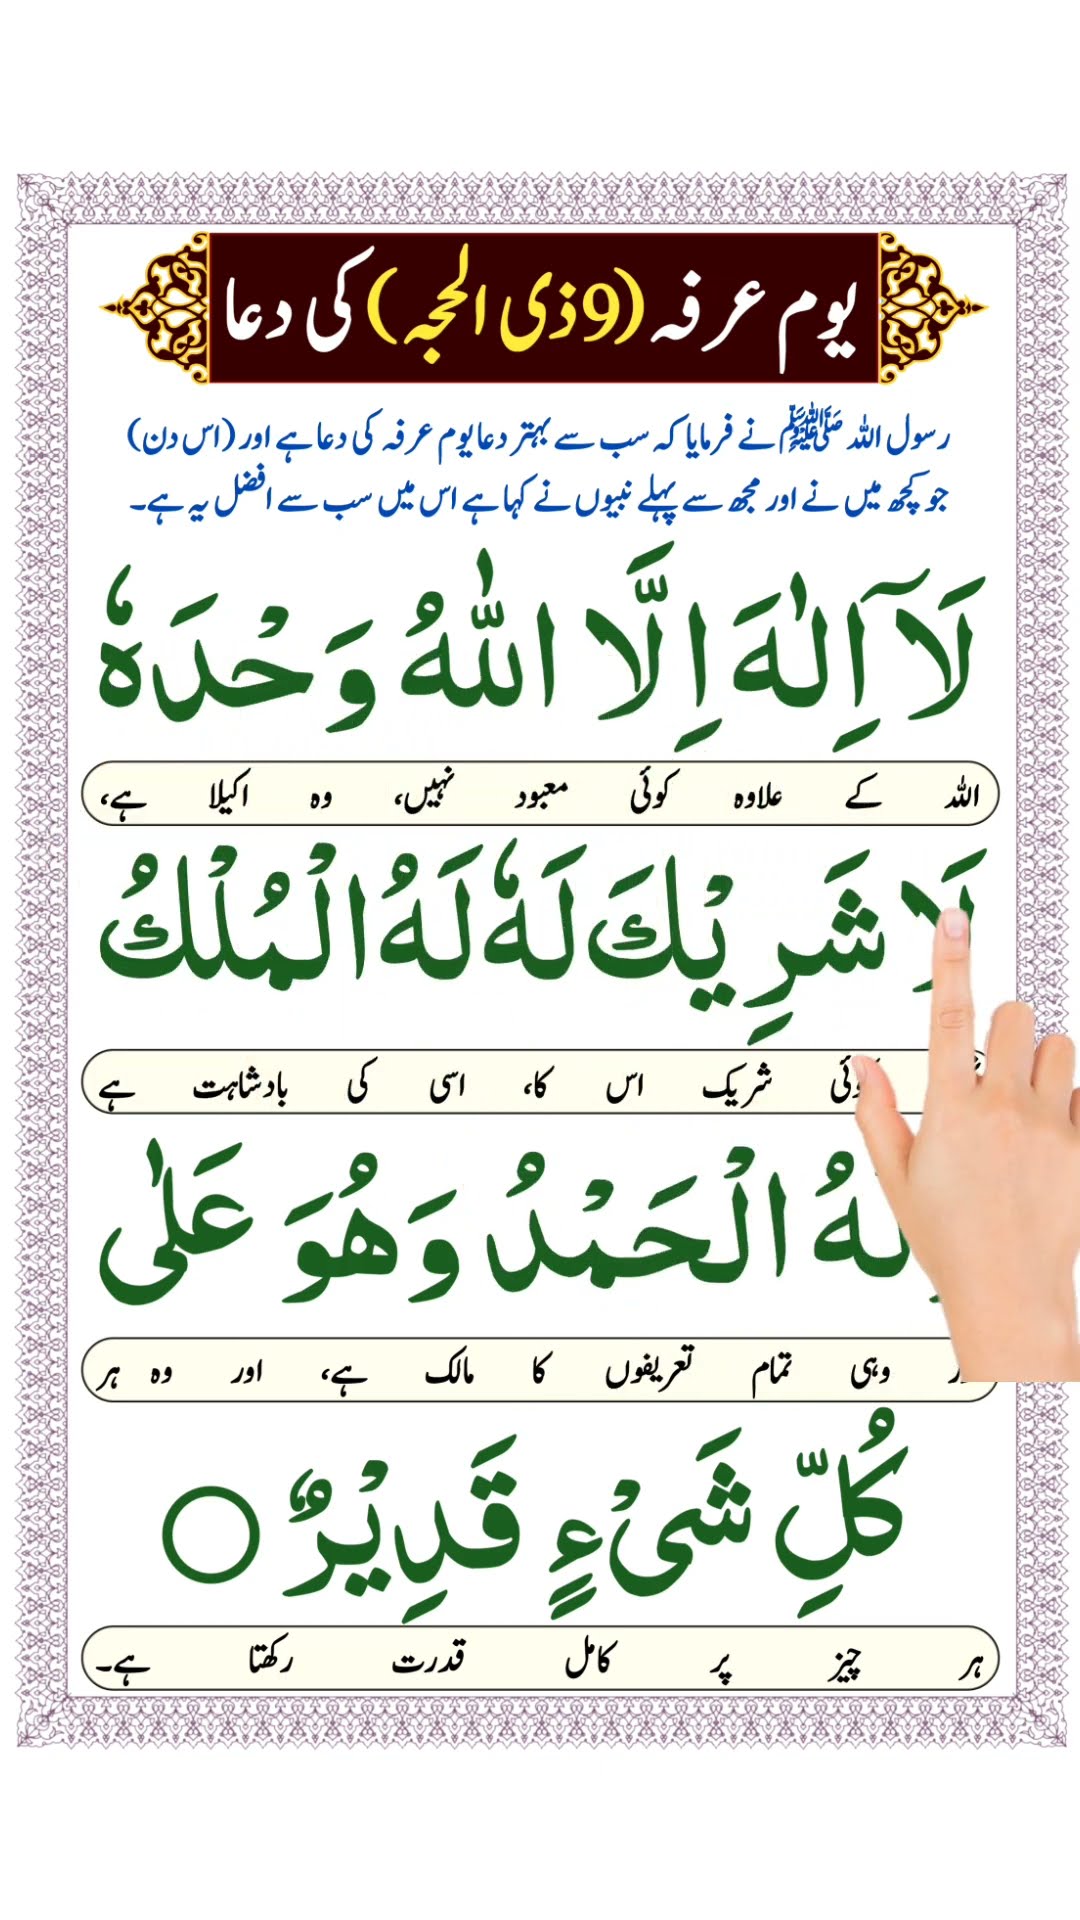 یوم عرفہ (9ذی الحجہ) کی دعا
رسول اللہ ﷺ نے فرمایا کہ سب سے بہتر دعا یوم عرفہ کی دعا ہے اور (اس دن)
جو کچھ میں نے اور مجھ سے پہلے نبیوں نے کہا ہے اس میں سب سے افضل یہ ہے۔
لَآ اِلٰهَ اِلَّا اللّٰهُ وَحْدَهٗ
اللہ کے علاوہ کوئی معبود نہیں، وہ اکیلا ہے،
لَا شَرِيْكَ لَهٗ لَهُ الْمُلْكُ
شریک اس کا، اسی کی بادشاہت ہے
الْحَمْدُ وَهُوَ عَلٰى
وہی تمام تعریفوں کا مالک ہے، اور وہ ہر
كُلِّ شَىْءٍ قَدِيْرٌ
ہر چیز پر کامل قدرت رکھتا ہے۔